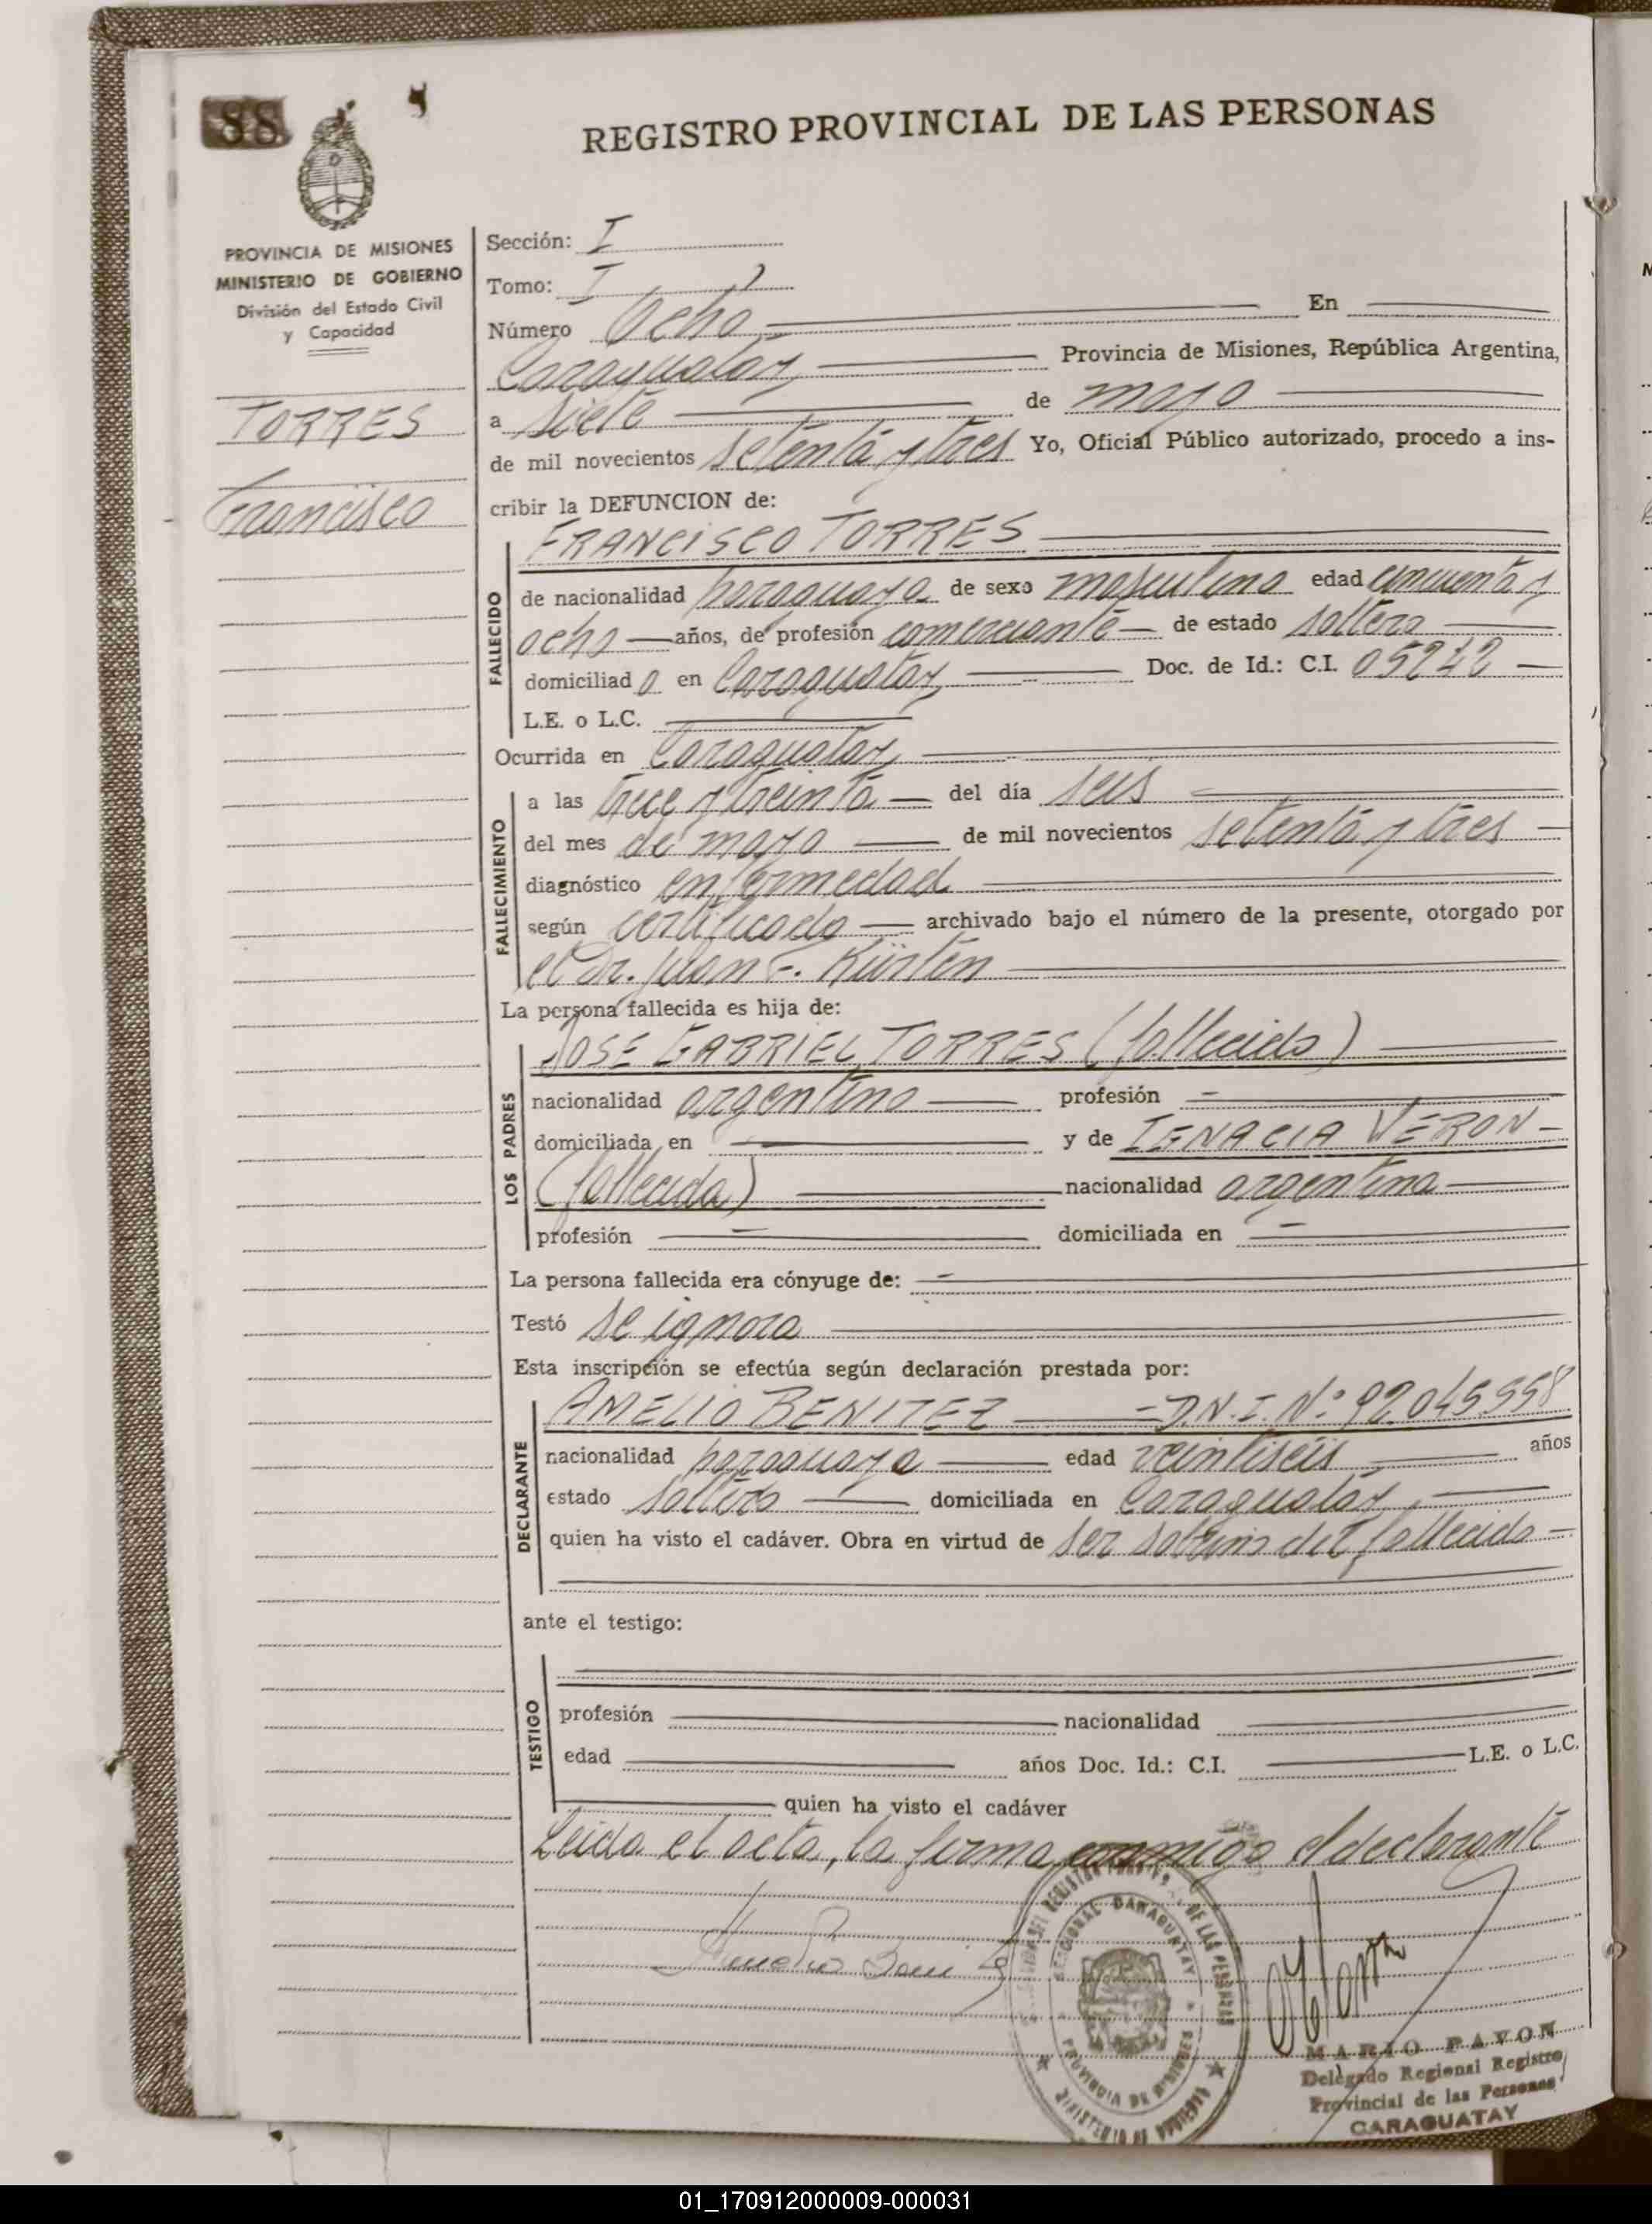 88
REGISTRO PROVINCIAL DE LAS PERSONAS
PROVINCIA DE MISIONES
MINISTERIO DE GOBIERNO
División del Estado Civil
y Capacidad
TORRES
Francisco
Sección: I
Tomo: I
Número Ocho En
Caraguatay Provincia de Misiones, República Argentina,
a siete de mayo
de mil novecientos setenta y tres Yo, Oficial Público autorizado, procedo a ins-
cribir la DEFUNCION de:
FALLECIDO
FRANCISCO TORRES
de nacionalidad paraguaya de sexo masculino edad cincuenta y
ocho años, de profesión comerciante de estado soltero
domiciliado en Caraguatay Doc. de Id.: C.I. 05242
L.E. o L.C.
Ocurrida en Caraguatay
FALLECIMIENTO
a las trece y treinta del día seis
del mes de mayo de mil novecientos setenta y tres
diagnóstico enfermedad
según certificado archivado bajo el número de la presente, otorgado por
el Dr. Juan F. Kürten
La persona fallecida es hija de:
LOS PADRES
JOSE GABRIEL TORRES (fallecido)
nacionalidad argentino profesión
domiciliada en y de IGNACIA VERON
(fallecida) nacionalidad argentina
profesión domiciliada en
La persona fallecida era cónyuge de:
Testó se ignora
Esta inscripción se efectúa según declaración prestada por:
DECLARANTE
AMELIO BENITEZ - D.N.I. Nº 92.045558
nacionalidad paraguaya edad veintiseis años
estado soltero domiciliada en Caraguatay
quien ha visto el cadáver. Obra en virtud de ser sobrino del fallecido
ante el testigo:
TESTIGO
profesión nacionalidad
edad años Doc. Id.: C.I. L.E. o L.C.
quien ha visto el cadáver
Leida el acta, la firma conmigo el declarante
SECCIONAL CARAGUATAY
PROVINCIA DE MISIONES
MINISTERIO DE GOBIERNO
MARIO PAVON
Delegado Regional Registro
Provincial de las Personas
CARAGUATAY
01_170912000009-000031